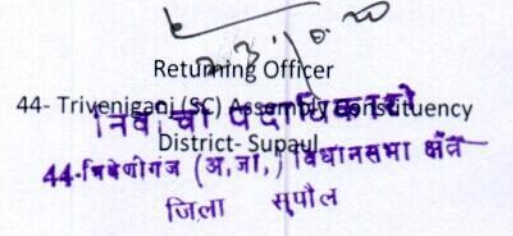 Returning Officer
44- Triveniganj (SC) Assembly Constituency
निर्वाची पदाधिकारी
District- Supaul
44-त्रिवेणीगंज (अ,जा,) विधानसभा क्षेत्र
जिला सुपौल